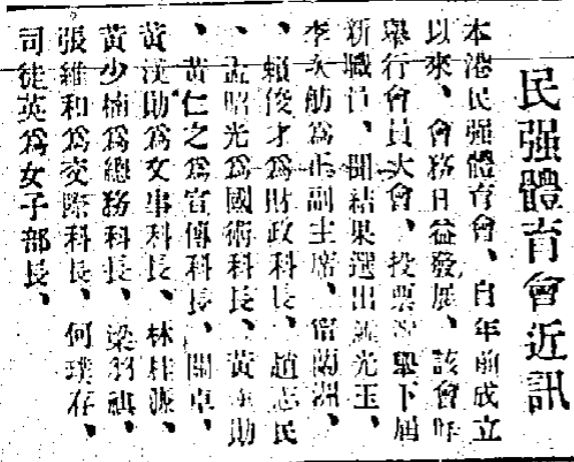 民强體育會近訊
本港民强體育會、自年前成立
以來、會務日益發展、該會昨
舉行會員大會、投票選舉下屆
新職員、開結果選出 光玉、
李次舫為正副主席、甯蘭洲、
、賴俊才為財政科長、趙志民
、孟昭光為國術科長、黃 助
、黃仁之為宣傳科長、關卓、
黃漢助為文事科長、林桂 、
黃少楠為總務科長、梁羽祺、
張維和為交際科長、何璞存、
司徒英為女子部長、